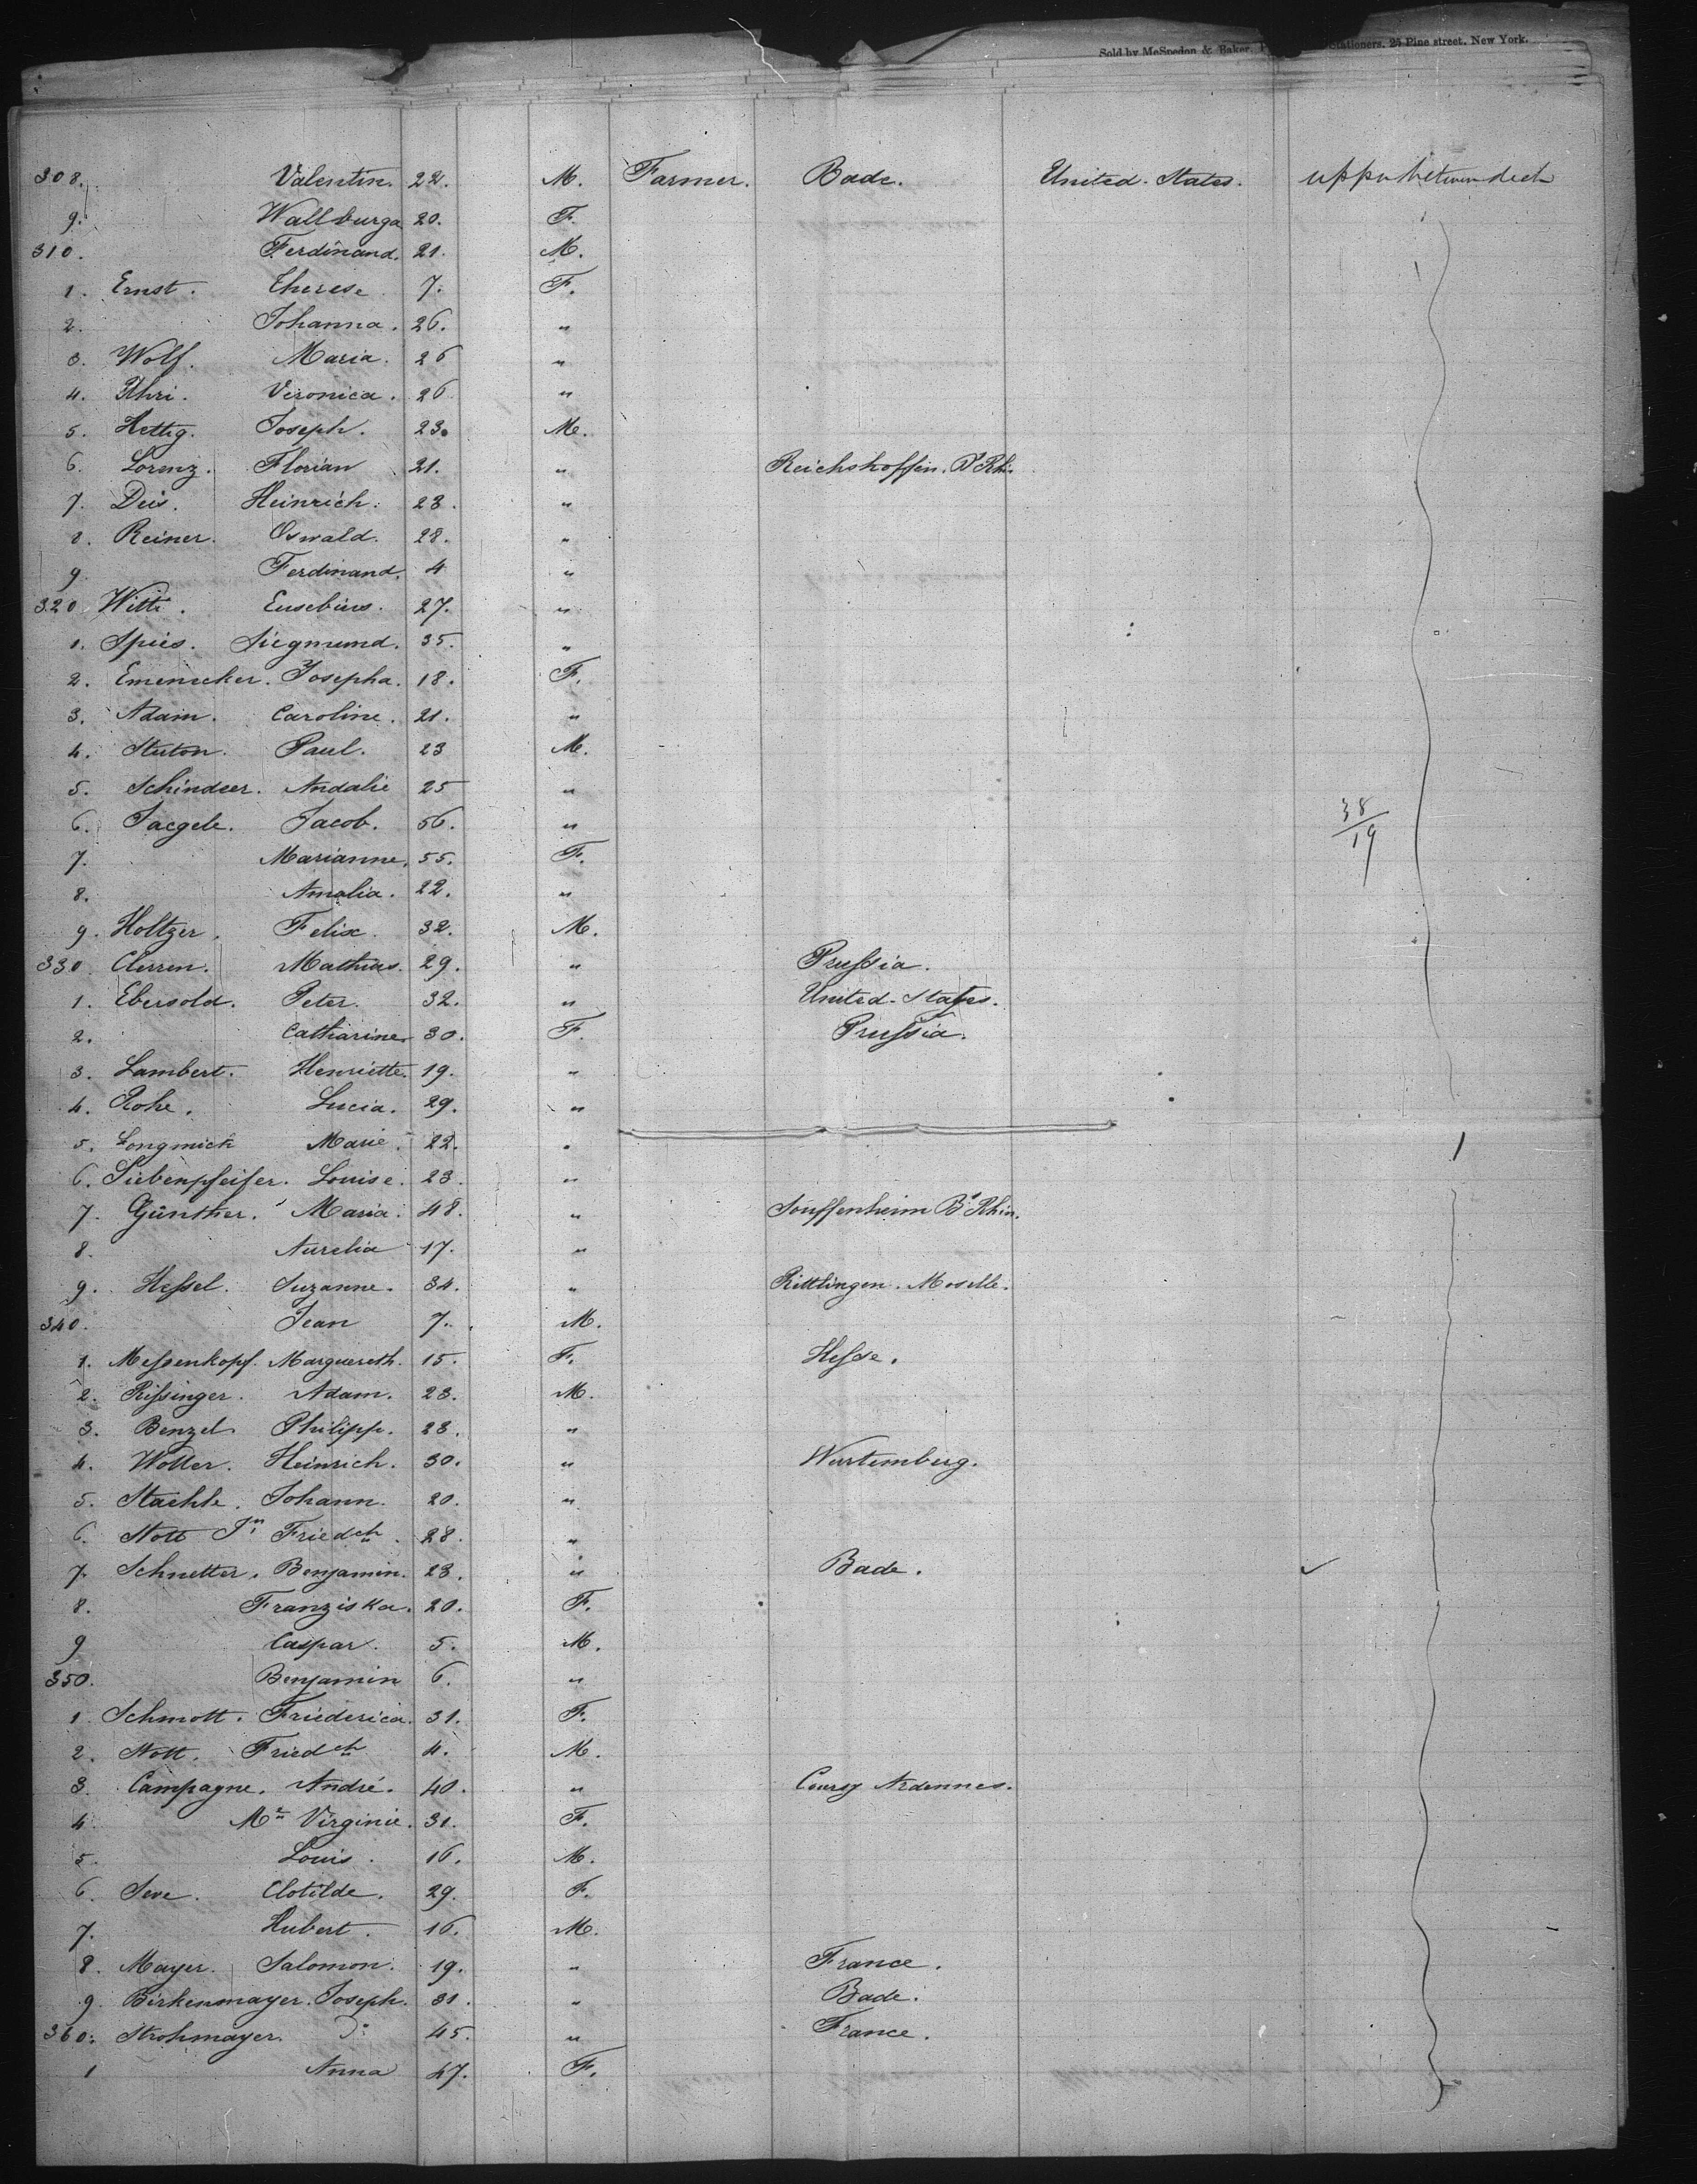 Sold by McSpedon & Baker, Stationers, 25 Pine street, New York.
308. Valentin. 22. M. Farmer. Bade. United-States. upper between deck
9. Wallburga 20. F.
310. Ferdinand. 21. M.
1. Ernst. Therese 7. F.
2. Johanna. 26. "
3. Wolf. Maria. 26 "
4. Veronica. 26 "
5. Hettig. Joseph. 23. M.
6. Lorenz. Florian 21. " Reichshoffen. Bs Rh.
7. Deis. Heinrich. 23. "
8. Reiner. Oswald. 28. "
9 Ferdinand. 4 "
320. Witti. Eusebius. 27. "
1. Spies. Siegmund. 35. "
2. Emenecker. Josepha. 18. F.
3. Adam. Caroline. 21. "
4. Stuton. Paul. 23 M.
5. Schindeer. Andalie 25 "
6. Jaegele. Jacob. 56. " 38/19
7. Marianne, 55. F.
8. Amalia. 22. "
9. Holtzer. Felix. 32. M.
330. Clerren. Mathias. 29. " Prussia.
1. Ebersold. Peter. 32. " United-States.
2. Catharine 30. F. Prussia.
3. Lambert. Henriette. 19. "
4. Rohe. Lucia. 29. "
5. Longmich Marie. 22. "
6. Siebenpfeifer. Louise. 23. "
7. Günther. Maria. 48. " Souffenheim Bs Rhin.
8. Aurelia 17. "
9. Hessel. Suzanne. 34. " Rittlingen. Moselle.
340. Jean 7. M.
1. Messenkopf. Marguereth. 15. F. Hesse.
2. Rissinger. Adam. 23. M.
3. Benzel Philipp. 23. "
4. Wolter. Heinrich. 30. " Wurtemberg.
5. Staehle. Johann. 20. "
6. Nott Jn Friedch. 28. "
7. Schnetter. Benjamin. 23. " Bade. ✓
8. Franziska. 20. F.
9 Caspar. 5. M.
350. Benjamin 6. "
1. Schmott. Friederica. 31. F.
2. Nott. Friedch 4. M.
3. Campagne. André. 40. " Ardennes.
4. Me Virginie. 31. F.
5. Louis. 16. M.
6. Seve. Clotilde. 29. F.
7. Hubert. 16. M.
8. Mayer. Salomon. 19. " France.
9. Birkenmayer. Joseph. 31. " Bade.
360. Strohmayer. Do 45. " France.
1 Anna 47. F.